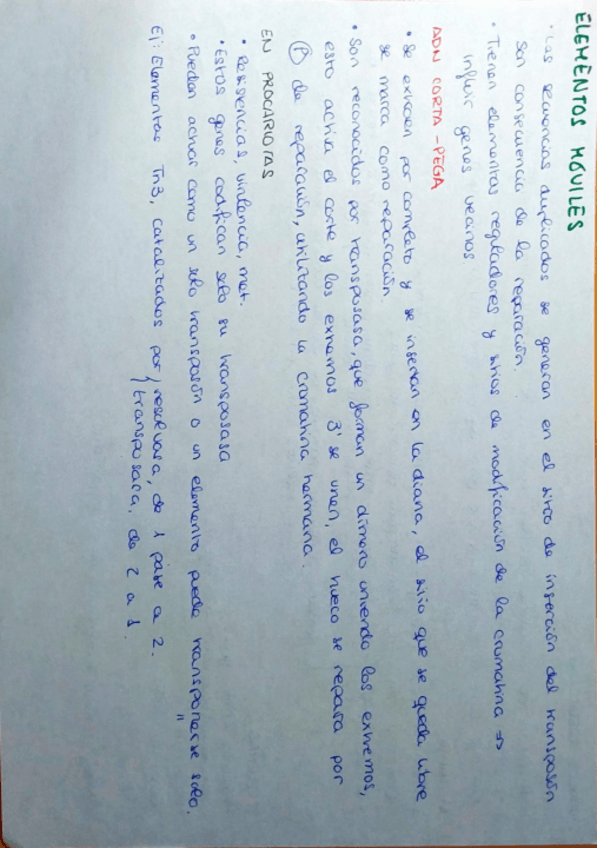 ELEMENTOS MÓVILES
• Las secuencias duplicadas se generan en el sitio de inserción del transposón
son consecuencia de la reparación.
• Tienen elementos reguladores y sitios de modificación de la cromatina ⇒
influir genes vecinos
ADN CORTA-PEGA
• Se extraen por completo y se insertan en la diana, el sitio que se queda libre
se marca como reparación
• Son reconocidos por transposasa, que forman un dímero uniendo los extremos,
esto activa el corte y los extremos 3' se unen, el hueco se repara por
Ⓟ de reparación, utilizando la cromatina hermana.
EN PROCARIOTAS
• Resistencias, virulencia, met.
• Estos genes codifican solo su transposasa
• Pueden actuar como un solo transposón o un elemento puede transponerse solo.
Ej: Elementos Tn3, catalizados por resolvasa, de 1 pase a 2.
transposasa, de 2 a 1.